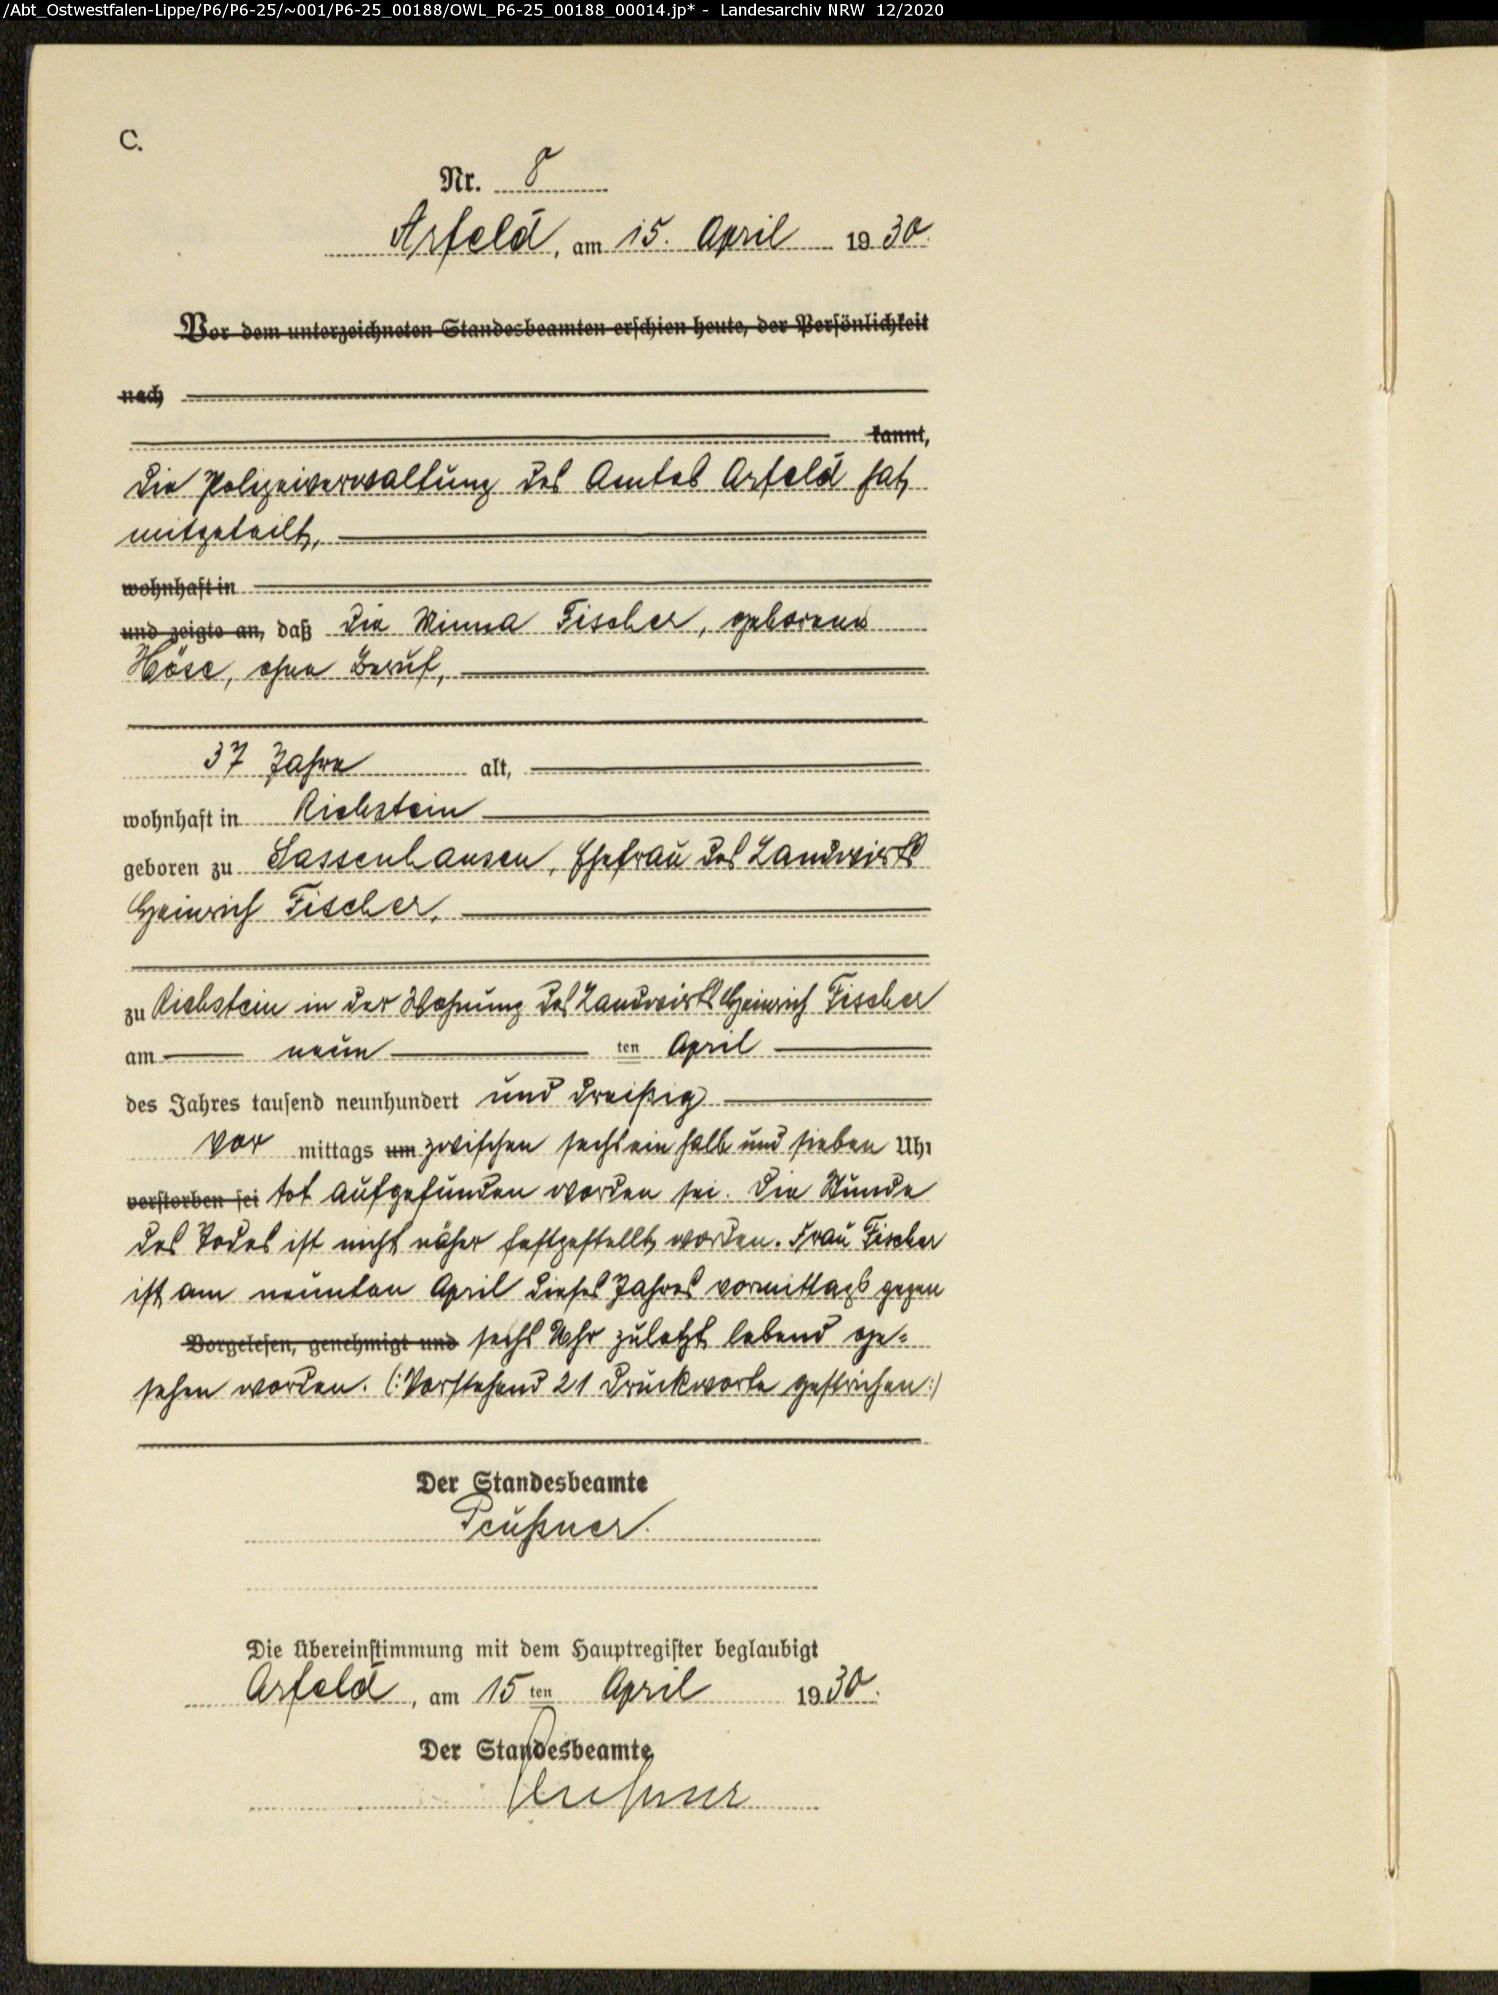 /Abt_Ostwestfalen-Lippe/P6/P6-25/~001/P6-25_00188/OWL_P6-25_00188_00014.jp* - Landesarchiv NRW 12/2020
C.
Nr. 8
Arfeld, am 15. April 1930.
Vor dem unterzeichneten Standesbeamten erschien heute, der Persönlichkeit
nach
kannt,
die Polizeiverwaltung des Amtes Arfeld hat
mitgeteilt,
wohnhaft in
und zeigte an, daß die Minna Fischer, geborene
Höse, ohne Beruf,
37 Jahre alt,
wohnhaft in Richstein
geboren zu Sassenhausen, Ehefrau des Landwirts
Heinrich Fischer,
zu Richstein in der Wohnung des Landwirts Heinrich Fischer
am neun ten April
des Jahres tausend neunhundert und dreißig
vor mittags um zwischen sechs ein halb und sieben Uhr
verstorben sei tot aufgefunden worden sei. Die Stunde
des Todes ist nicht näher festgestellt worden. Frau Fischer
ist am neunten April dieses Jahres vormittags gegen
Vorgelesen, genehmigt und sechs Uhr zuletzt lebend ge-
sehen worden. (: Vorstehend 21 Druckworte gestrichen :)
Der Standesbeamte
Preußner.
Die Übereinstimmung mit dem Hauptregister beglaubigt
Arfeld, am 15 ten April 1930.
Der Standesbeamte
Preußner